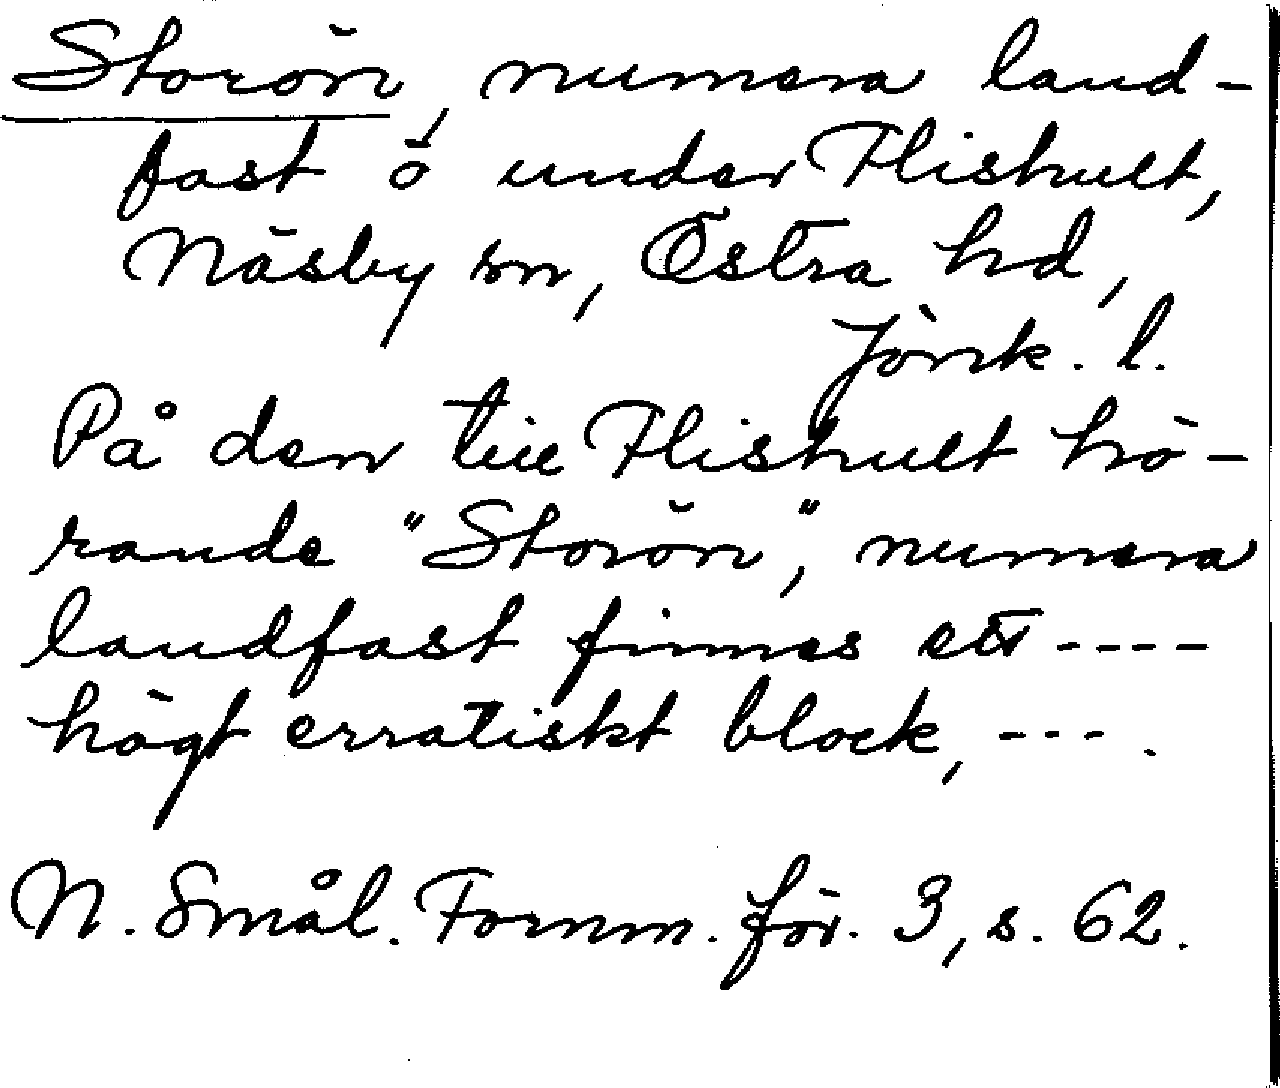 Storön, numera land-
fast ö under Flishult,
Näsby sn, Östra hd,
Jönk. l.
På den till Flishult hö-
rande "Storön", numera
landfast finnes ett ----
högt erratiskt block, ---.
N. Smål. Fornm. för. 3, s. 62.